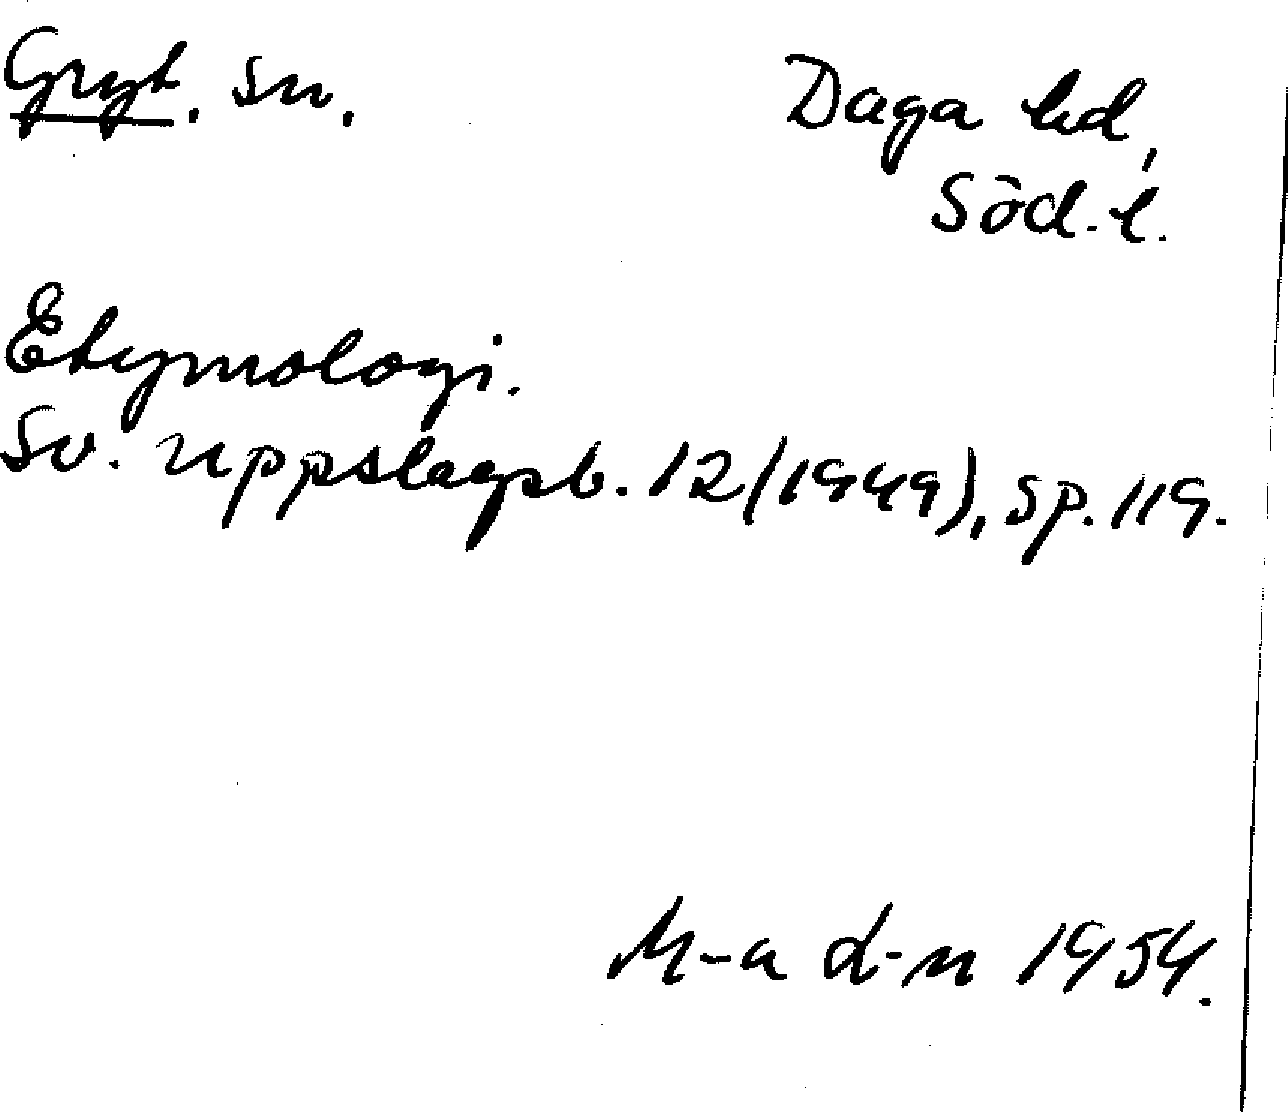 Gryt. sn.
Daga hd,
Söd.l.
Etymologi.
Sv. uppslagsb. 12 (1949), sp. 119.
M-a d-n 1954.